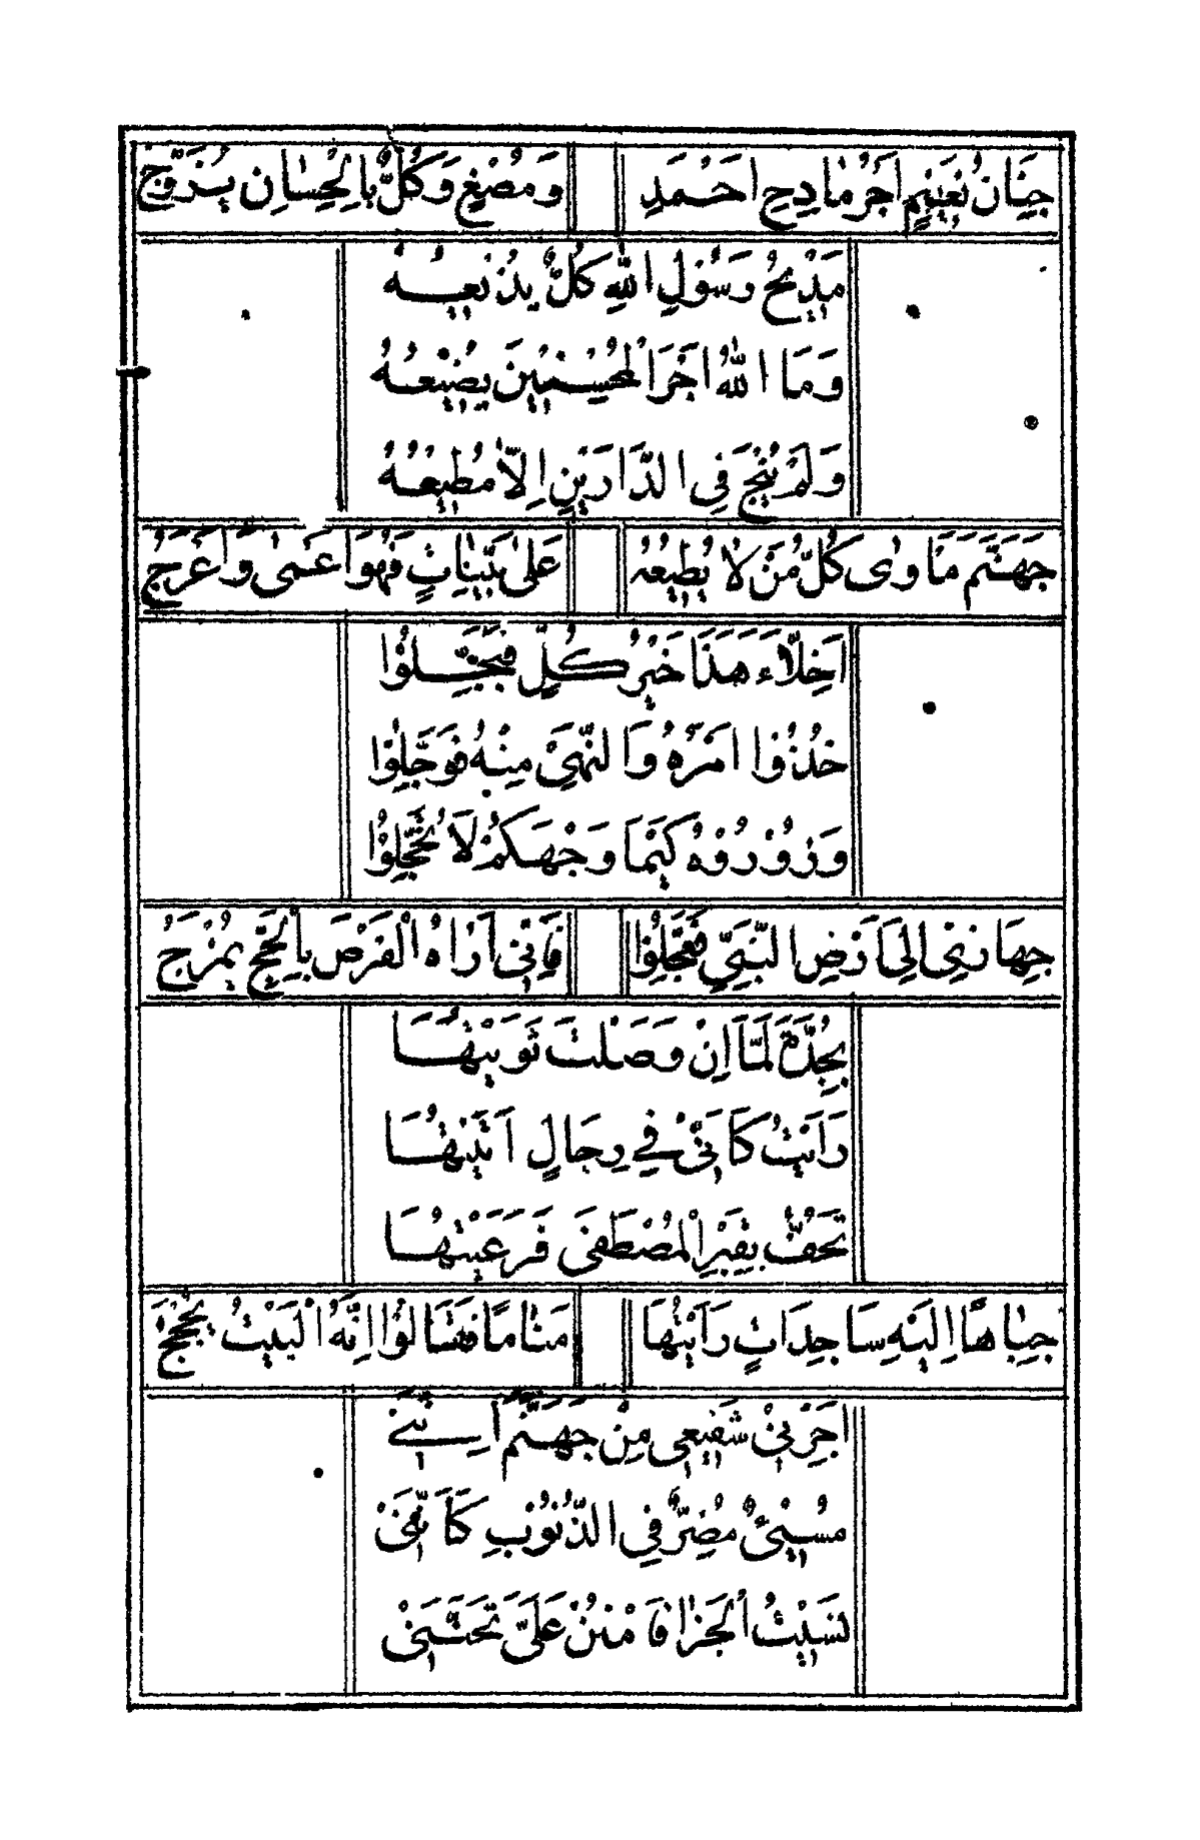 جِنَانُ نَعِيْمٍ اَجْرُ مَادِحِ اَحْمَدِ وَمُصْغٍ وَكُلٌّ بِالْحِسَانِ يُزَوَّجُ
مَدِيْحُ رَسُوْلِ اللّٰهِ كُلٌّ يُذِيْعُهُ
وَمَا اللّٰهُ اَجْرَ الْمُحْسِنِيْنَ يُضِيْعُهُ
وَلَمْ يَنْجُ فِي الدَّارَيْنِ اِلَّا مُطِيْعُهُ
جَهَنَّمُ مَاوٰى كُلِّ مَنْ لَا يُطِيْعُهُ عَلٰى بَيِّنَاتٍ فَهْوَ اَعْمٰى وَاَعْرَجُ
اَخِلَّاءَ هٰذَا خَيْرُ كُلٍّ فَبَجِّلُوْا
خُذُوْا اَمْرَهُ وَالنَّهْيَ مِنْهُ فَوَجِّلُوْا
وَزُوْرُوْهُ كَيْمَا وَجْهَكُمْ لَا يُخَجِّلُوْا
جِهَازِيْ اِلٰى اَرْضِ النَّبِيِّ فَعَجِّلُوْا فَاِنِّيْ اَرَاهُ الْفَرْضَ بِالْحَجِّ يُمْزَجُ
بِجُدَّةَ لَمَّا اِنْ وَصَلْتُ ثَوَيْتُهَا
رَاَيْتُ كَاَنِّيْ فِي رِجَالٍ اَتَيْتُهَا
تَحُفُّ بِقَبْرِ الْمُصْطَفٰى فَرَعَيْتُهَا
جِبَاهًا اِلَيْهِ سَاجِدَاتٍ رَاَيْتُهَا مَنَامًا فَقَالُوْا اِنَّهُ الْبَيْتُ يُحْجَجُ
اَجِرْنِيْ شَفِيْعِيْ مِنْ جَهَنَّمَ اِنَّنِيْ
مُسِيْئٌ مُضِرٌّ فِي الذُّنُوْبِ كَاَنَّنِيْ
نَسِيْتُ الْجَزَا فَامْنُنْ عَلَيَّ تَحَنَّنِيْ